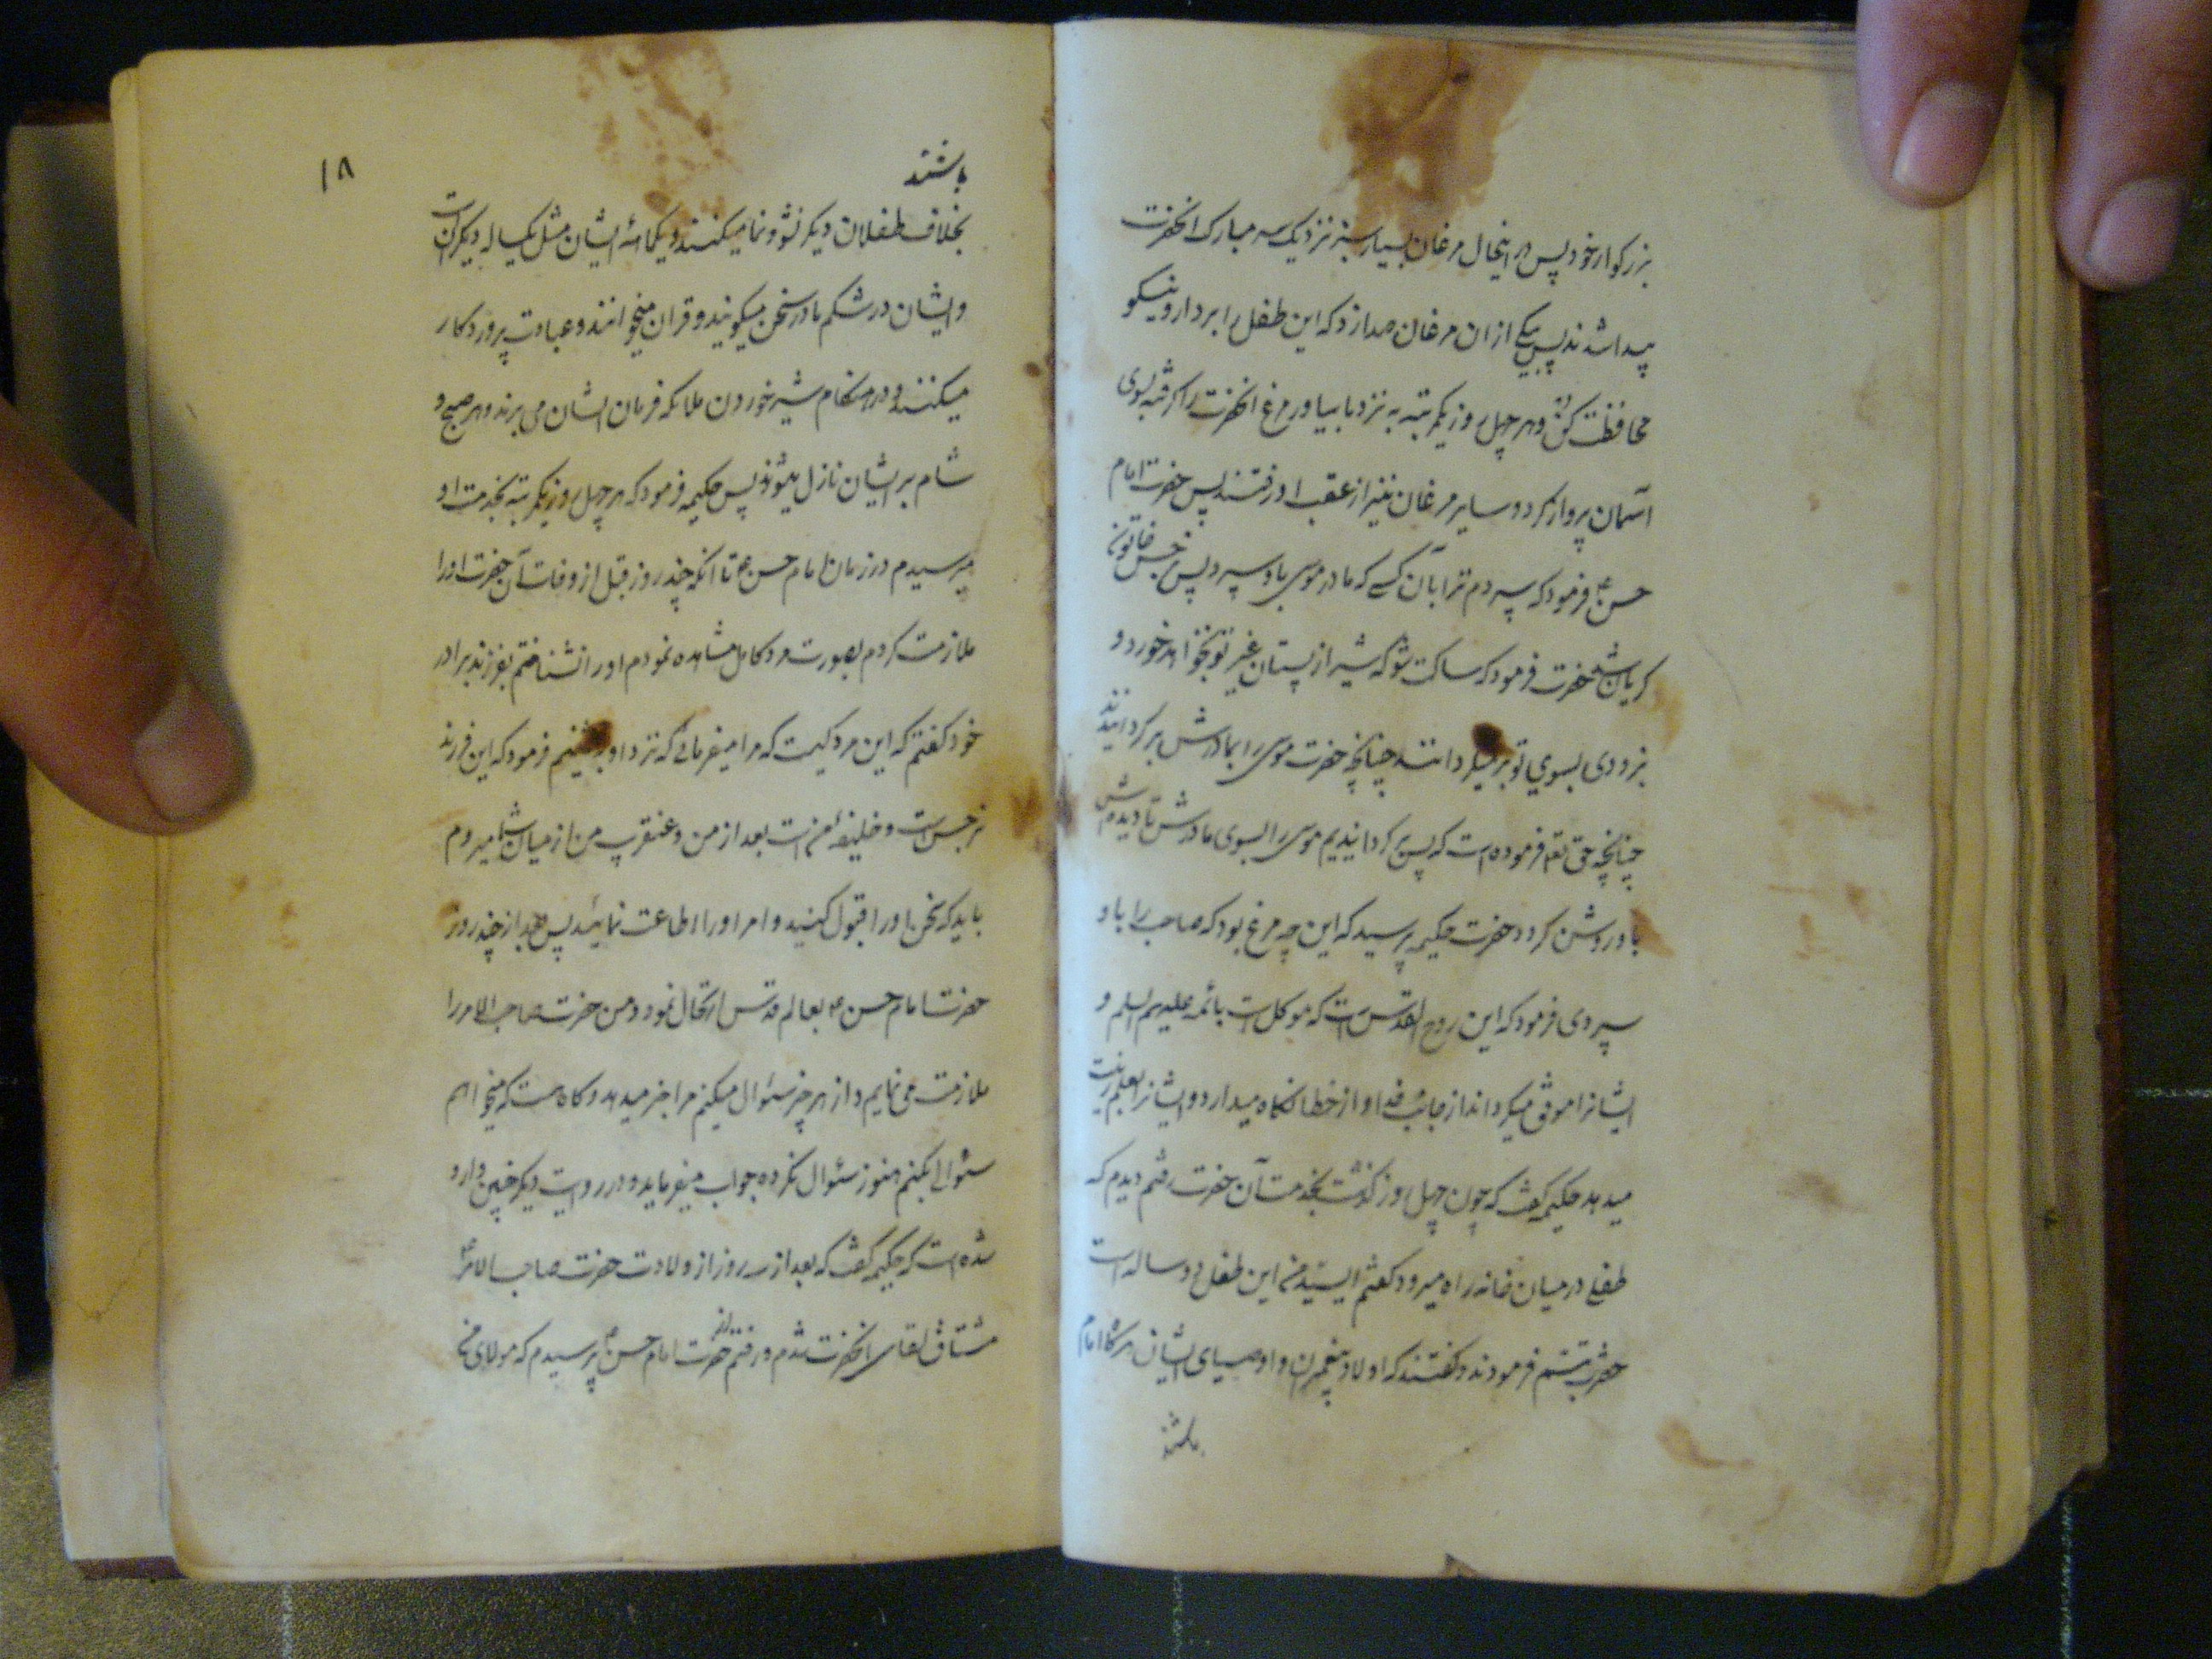 بزرکوار خود پس در اینحال مرغان بسیار سبز نزدیک سر مبارک انحضرت
پیدا شدند پس یکی از ان مرغان صدا زد که این طفل را بردار و نیکو
محافظت کن و در هر چهل روز یکمرتبه به نزد ما بیاور مرغ انحضرت را کرفته بسوی
آسمان پرواز کرد و سایر مرغان نیز از عقب او رفتند پس حضرت امام
حسن ع فرمود که سپردم ترا بآن کسی که مادر موسی باو سپرد پس نرجس خاتون
کریان شد حضرت فرمود که ساکت شو که شیر از پستان غیر تو نخواهد خورد و
بزودی بسوی تو برمیکردانند چنانچه حضرت موسی را بمادرش برکردانیدند
چنانچه حق تعم فرموده است که پس برکردانیدیم موسی را بسوی مادرش تا دیده‌اش
باو روشن کردد حضرت حکیمه پرسید که این چه مرغ بود که صاحب را باو
سپردی فرمود که این روح القدس است که موکل است بائمه علیهم السلم و
ایشانرا موفق میکرداند از جانب خدا و از خطا نکاه میدارد و ایشانرا بعلم زینت
میدهد حکیمه کفت که چون چهل روز کذشت بخدمت آن حضرت رفتم دیدم که
طفلی در میان خانه راه میرود کفتم ای سید من این طفل دو ساله است
حضرت تبسم فرمودند و کفتند که اولاد پیغمبران و اوصیای ایشان هرکاه امام
باشند
۱۸
باشند
بخلاف طفلان دیکر نشو و نما میکنند و یکماهه ایشان مثل یکساله دیکران است
و ایشان در شکم مادر سخن میکویند و قران میخوانند و عبادت پروردکار
میکنند و در هنکام شیر خوردن ملائکه فرمان ایشان می برند و هر صبح و
شام بر ایشان نازل میشوند پس حکیمه فرمود که هر چهل روز یکمرتبه بخدمت او
میرسیدم در زمان امام حسن ع تا انکه چند روز قبل از وفات آن حضرت او را
ملازمت کردم بصورت مرد کامل مشاهده نمودم او را نشناختم بفرزند برادر
خود کفتم که این مرد کیست که مرا میفرمائی که نزد او بنشینم فرمود که این فرزند
نرجس است و خلیفه منست بعد از من و عنقریب من از میان شما میروم
باید که سخن او را قبول کنید و امر او را اطاعت نمائید پس بعد از چند روز
حضرت امام حسن ع بعالم قدس ارتحال نمود و من حضرت صاحب الامر را
ملازمت می نمایم و از هر چیز سئوال میکنم مرا خبر میدهد و کاه هست که میخواهم
سئوالی بکنم هنوز سئوال نکرده جواب میفرماید و در روایت دیکر چنین وارد
شده است که حکیمه کفت که بعد از سه روز از ولادت حضرت صاحب الامر ع
مشتاق لقای انحضرت شدم و رفتم حضرت امام حسن ع پرسیدم که مولای من